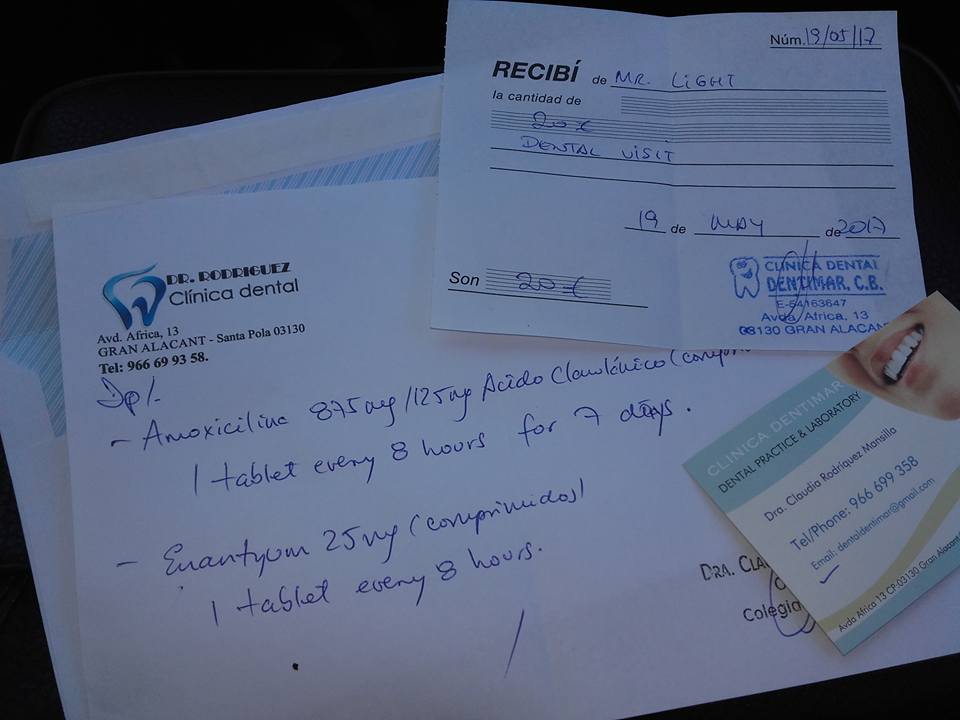 Núm. 19/05/17
RECIBÍ de MR. LIGHT
la cantidad de
20 €
DENTAL VISIT
19 de MAY de 2017
Son 20 €
CLINICA DENTAL
DENTIMAR, C.B.
E-54163647
Avda. Africa, 13
03130 GRAN ALACAN
DR. RODRIGUEZ
Clínica dental
Avd. Africa, 13
GRAN ALACANT - Santa Pola 03130
Tel: 966 69 93 58.
- Amoxicilina 875mg/125mg Acido Clavulánico (comp
1 tablet every 8 hours for 7 days.
- Enantyum 25mg (comprimidos)
1 tablet every 8 hours.
DRA. CLA
Colegia
CLINICA DENTIMAR
DENTAL PRACTICE & LABORATORY
Dra. Claudia Rodriquez Mansilla
Tel/Phone: 966 699 358
Email: dentaldentimar@gmail.com
Avda Africa 13 CP.03130 Gran Alacant